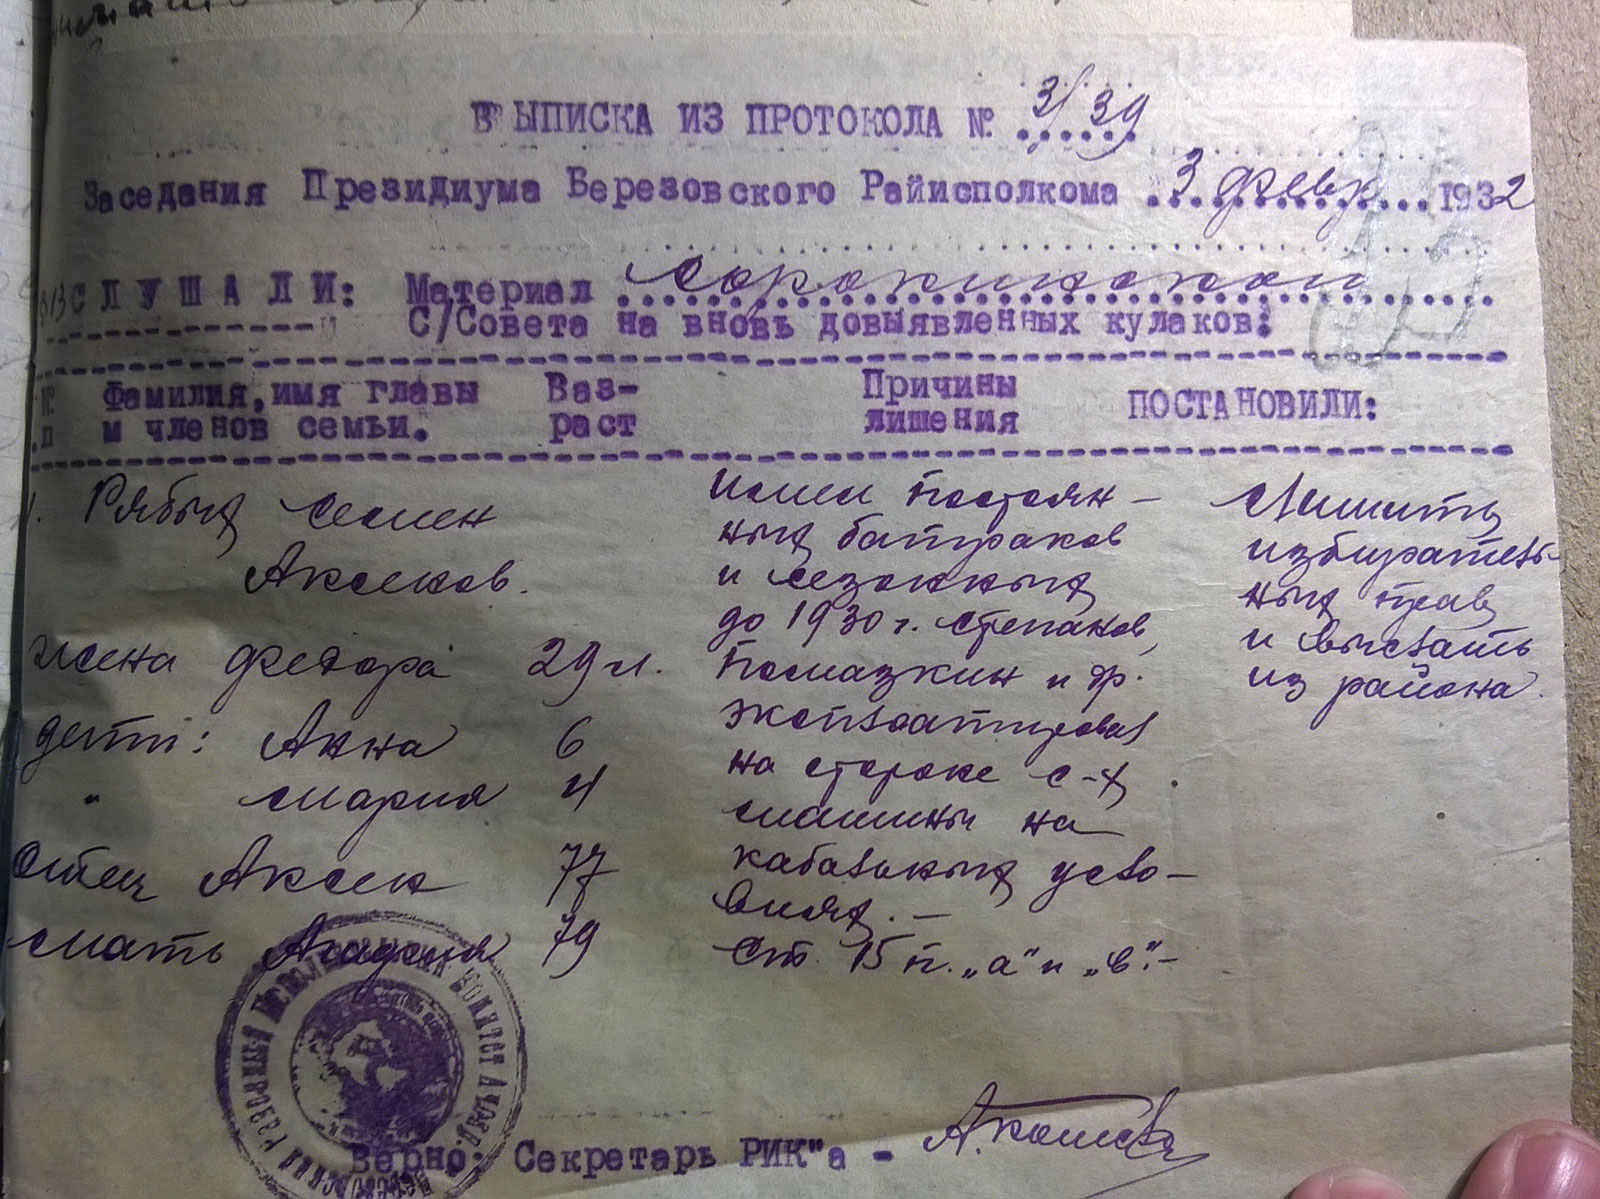 ВЫПИСКА ИЗ ПРОТОКОЛА №. 3/39
Заседания Президиума Березовского Райисполкома 3 февр 1932
СЛУШАЛИ: Материал Сорокинской
С/Совета на вновь довыявленных кулаков:
№ Фамилия, имя главы Ваз- Причины ПОСТАНОВИЛИ:
п м членов семьи. раст лишения
1. Рябых Семен
Аксенов.
жена Федора 29 л.
дети: Анна 6
" Мария 4
Отец Аксен 77
мать Агафия 79
имел постоян-
ных батраков
и сезонных
до 1930 г. Степанов,
Помазкин и др.
эксплоатировал
на стороне с-х
машины на
кабальных усло-
виях. -
Ст. 15 п. „а" и „в". -
Лишить
избиратель-
ных прав
и выслать
из района.
Верно: Секретарь РИК"а -